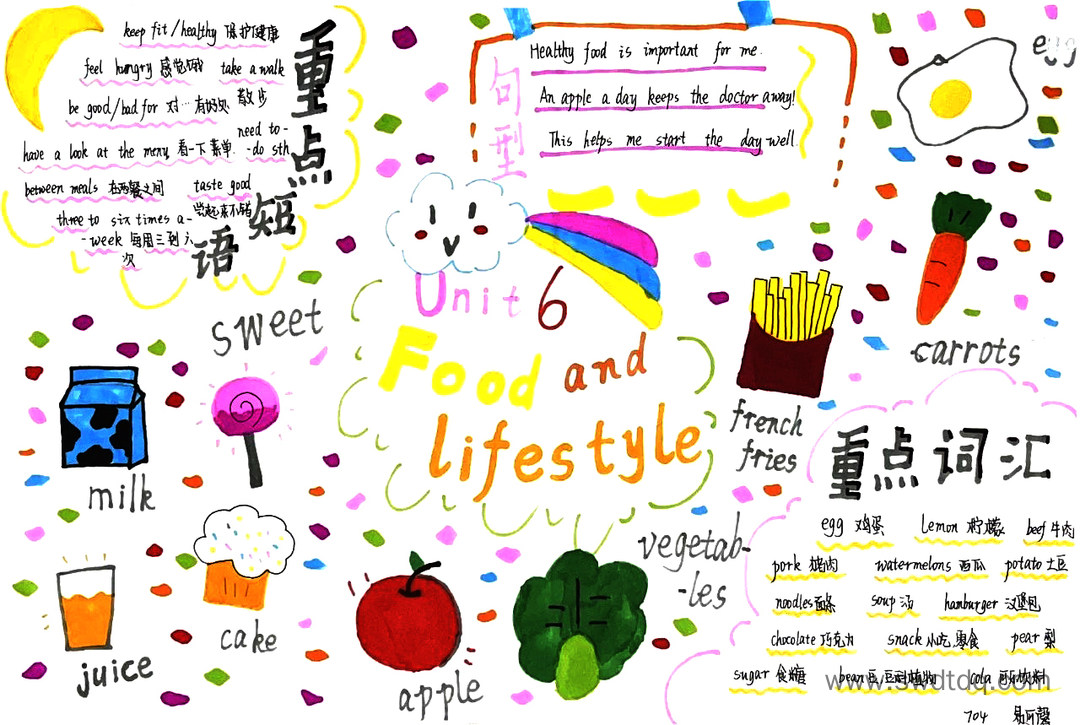 keep fit/healthy 保护健康
feel hungry 感觉饿 take a walk
散步
be good/bad for 对…有好处
need to-
-do sth
have a look at the menu 看一下菜单
between meals 在两餐之间 taste good
尝起来不错
three to six times a-
-week 每周三到六
次
重点
短语
句型
Healthy food is important for me.
An apple a day keeps the doctor away!
This helps me start the day well.
egg
carrots
Unit 6
Food and
lifestyle
sweet
milk
juice
cake
apple
vegetab-
-les
french
fries
重点词汇
egg 鸡蛋 Lemon 柠檬 beef 牛肉
pork 猪肉 watermelons 西瓜 potato 土豆
noodles 面条 soup 汤 hamburger 汉堡包
chocolate 巧克力 snack 小吃,零食 pear 梨
sugar 食糖 bean 豆,豆科植物 cola 可乐饮料
www.swdtdq.com
704